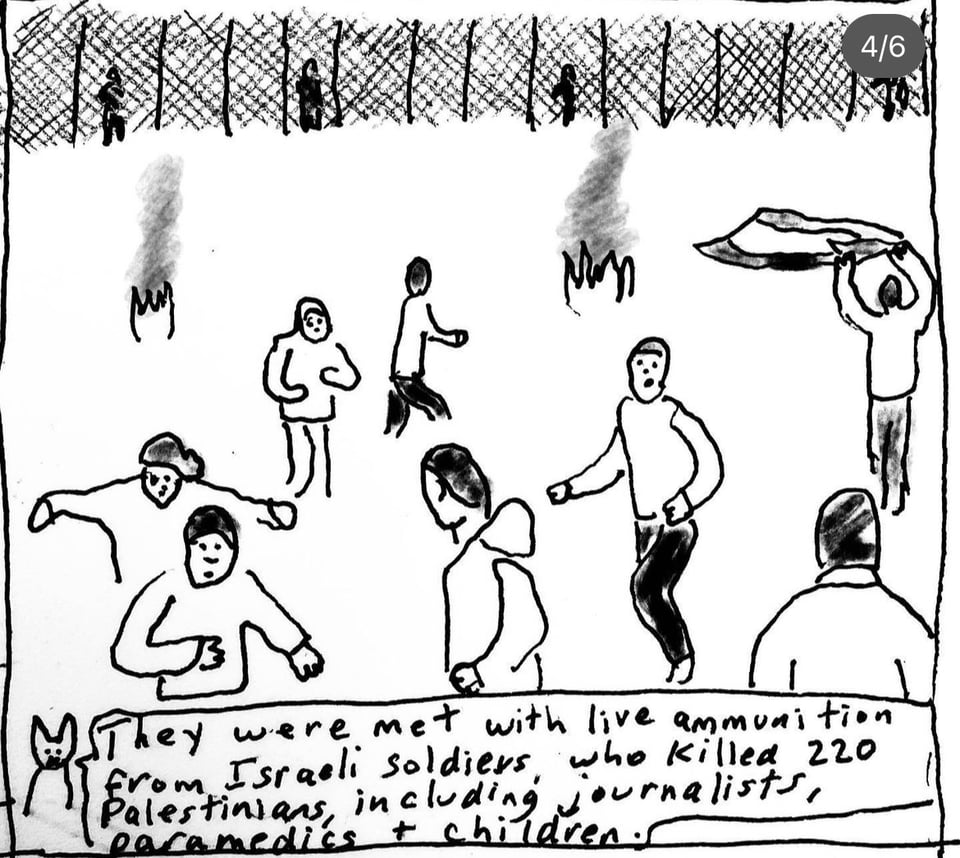 4/6
They were met with live ammunition
from Israeli soldiers, who killed 220
Palestinians, including journalists,
paramedics + children.